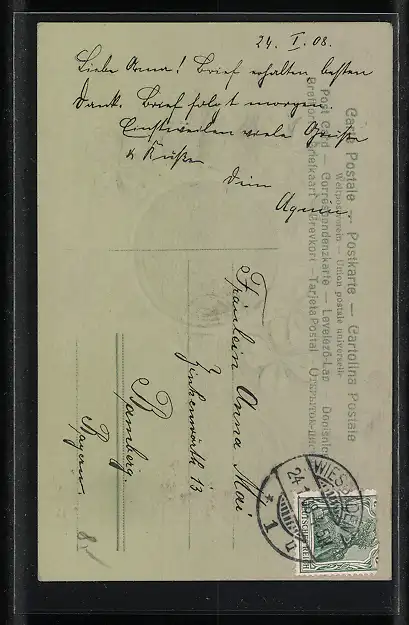 24. I. 08.
Liebe Anna! Brief erhalten besten
Dank. Brief folgt morgen.
Einstweilen viele Grüße
& Küsse
Dein
Agnes
Carte Postale — Postkarte — Cartolina Postale
Weltpostverein — Union postale universelle
Post Card — Correspondenzkarte — Levelező-Lap — Dopisnice
Briefkaart — Brevkort — Tarjeta Postal
Fräulein Anna Mai
Zinkenwörth 13
Bamberg.
Bayern.
WIESBADEN
24.1
1
DEUTSCHES REICH